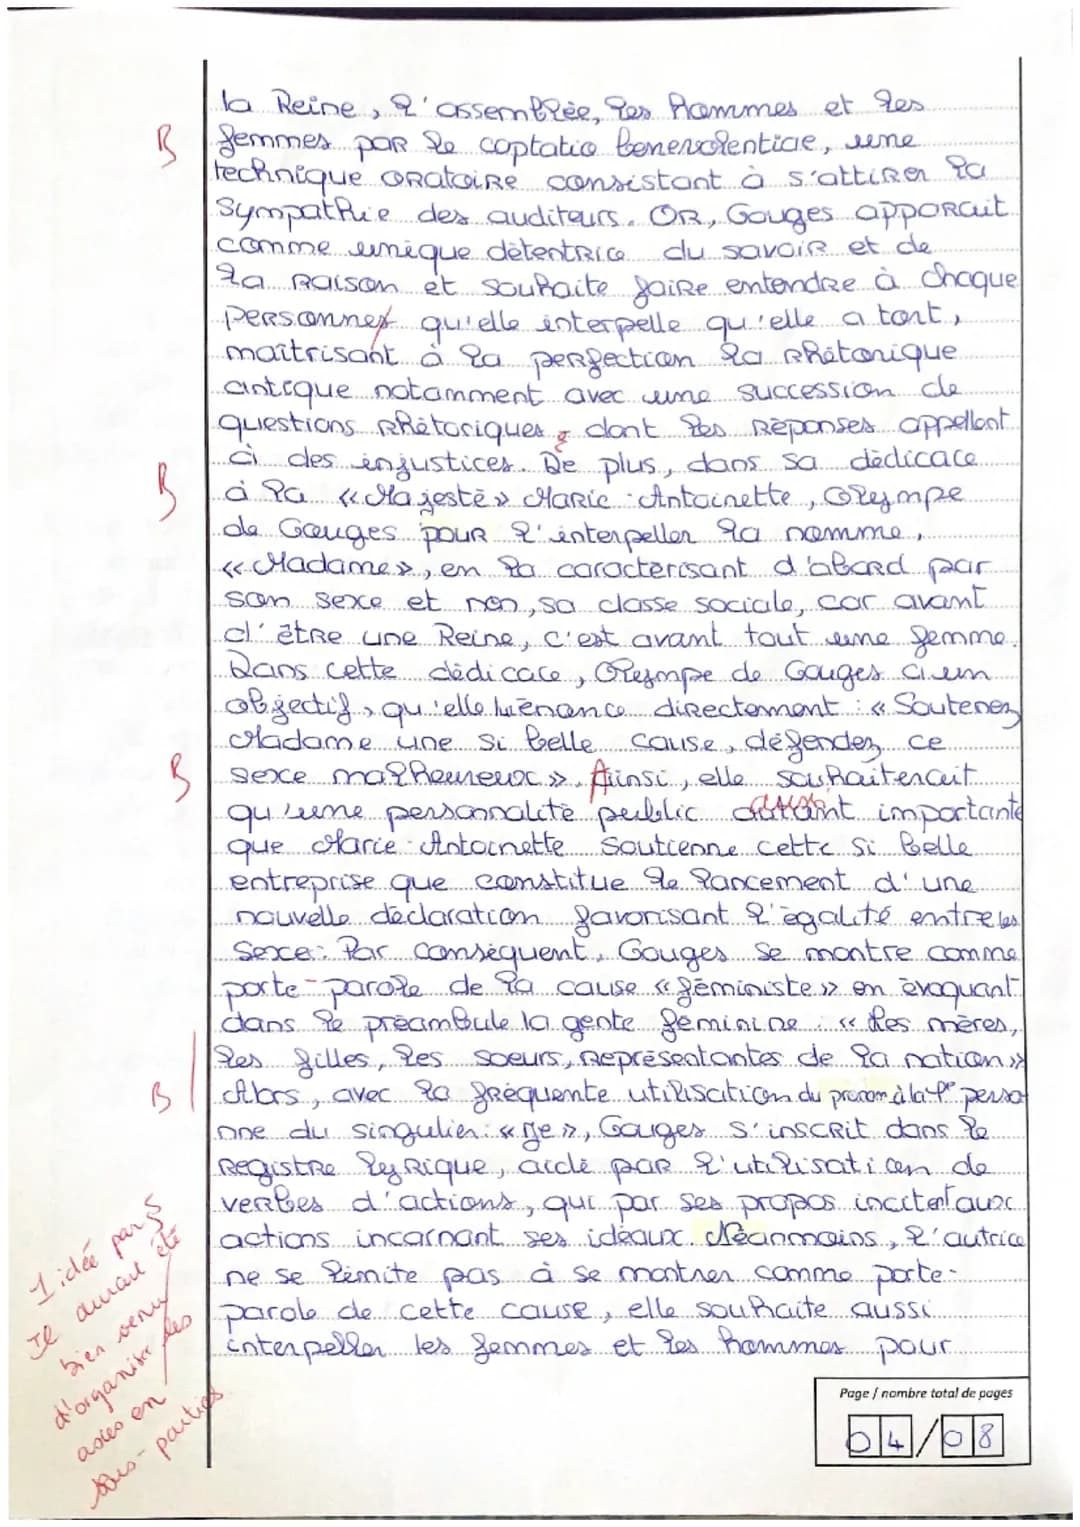 la Reine, l'assemblée, les hommes et les
B
femmes par le captatio benevolentiae, une
technique oratoire consistant à s'attirer la
sympathie des auditeurs. Or, Gouges apparait
comme unique détentrice du savoir et de
la raison et souhaite faire entendre à chaque
personnes qu'elle interpelle qu'elle a tort,
maîtrisant à la perfection la rhétorique
antique notamment avec une succession de
questions rhétoriques, dont les réponses appellent
à des injustices. De plus, dans sa dédicace
B
à la « Majesté » Marie-Antoinette, Olympe
de Gouges pour l'interpeller la nomme,
« Madame », en la caractérisant d'abord par
son sexe et non, sa classe sociale, car avant
d'être une Reine, c'est avant tout une femme.
Dans cette dédicace, Olympe de Gouges a un
objectif, qu'elle énonce directement : « Soutenez
Madame une si belle cause, défendez ce
B
sexe malheureux ». Ainsi, elle souhaiterait
qu'une personnalité public aussi importante
que Marie-Antoinette soutienne cette si belle
entreprise que constitue le lancement d'une
nouvelle déclaration favorisant l'égalité entre les
sexe. Par conséquent, Gouges se montre comme
porte-parole de la cause « féministe » en évoquant
dans le préambule la gente féminine : « Les mères,
les filles, les soeurs, représentantes de la nation »
B
Alors, avec la fréquente utilisation du pronom à la 1ère perso
nne du singulier : « Je », Gouges s'inscrit dans le
registre lyrique, aidé par l'utilisation de
verbes d'actions, qui par ses propos incitent aux
actions incarnant ses idéaux. Néanmoins, l'autrice
ne se limite pas à se montrer comme porte-
parole de cette cause, elle souhaite aussi
interpeller les femmes et les hommes pour
1 idée par §
Il aurait été
bien venu
d'organiser les
axes en
sous-parties
Page / nombre total de pages
04/08